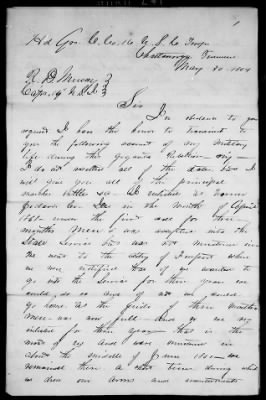 Hd Qrs Co. 16 U.S. Co Troops
Chattanooga Tennessee
May 30 1864
R. D. Mussey
Capt. 19" U.S.I
Sir
In obedience to your
request I have the honor to transmit to
you the following account of my military
life during this gigantic Rebellion
I do not recollect all of the dates but I
will give you all of the principal
Enlisted as
in the month of April
1861 under the first call for three
months men & was accepted into the
State Service but was not mustered in
when
we were notified that if we wanted to
go into the Service for three years we
could do so and if not we could
go home as the quota of three months
men was now full and so we
enlisted for three years that is the
most of us and were mustered in
about the middle of June 1861 we
remained there a short time during which
we drew our arms and accoutrements